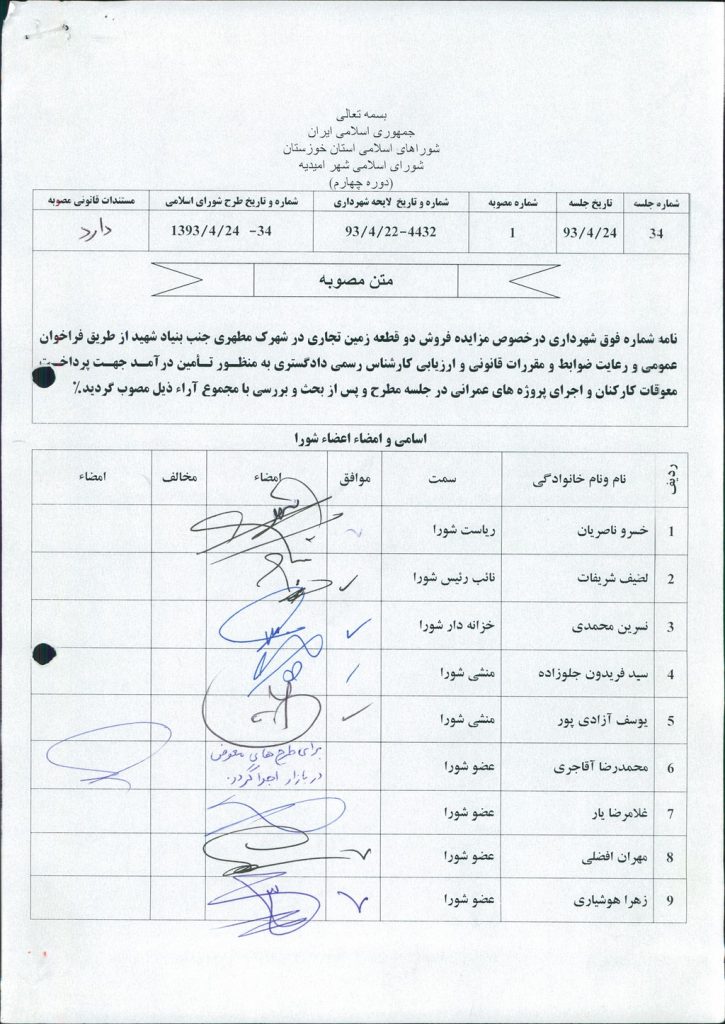 بسمه تعالی
جمهوری اسلامی ایران
شوراهای اسلامی استان خوزستان
شورای اسلامی شهر امیدیه
(دوره چهارم)
شماره جلسه تاریخ جلسه شماره مصوبه شماره و تاریخ لایحه شهرداری شماره و تاریخ طرح شورای اسلامی مستندات قانونی مصوبه
34 93/4/24 1 93/4/22-4432 1393/4/24 -34 دارد
متن مصوبه
نامه شماره فوق شهرداری درخصوص مزایده فروش دو قطعه زمین تجاری در شهرک مطهری جنب بنیاد شهید از طریق فراخوان
عمومی و رعایت ضوابط و مقررات قانونی و ارزیابی کارشناس رسمی دادگستری به منظور تأمین درآمد جهت پرداخت
معوقات کارکنان و اجرای پروژه های عمرانی در جلسه مطرح و پس از بحث و بررسی با مجموع آراء ذیل مصوب گردید.٪
اسامی و امضاء اعضاء شورا
ردیف نام ونام خانوادگی سمت موافق امضاء مخالف امضاء
1 خسرو ناصریان ریاست شورا
2 لضیف شریفات نائب رئیس شورا
3 نسرین محمدی خزانه دار شورا
4 سید فریدون جلوزاده منشی شورا
5 یوسف آزادی پور منشی شورا
6 محمدرضا آقاجری عضو شورا برای طرح های
در بازار اجرا گردد.
7 غلامرضا یار عضو شورا
8 مهران افضلی عضو شورا
9 زهرا هوشیاری عضو شورا